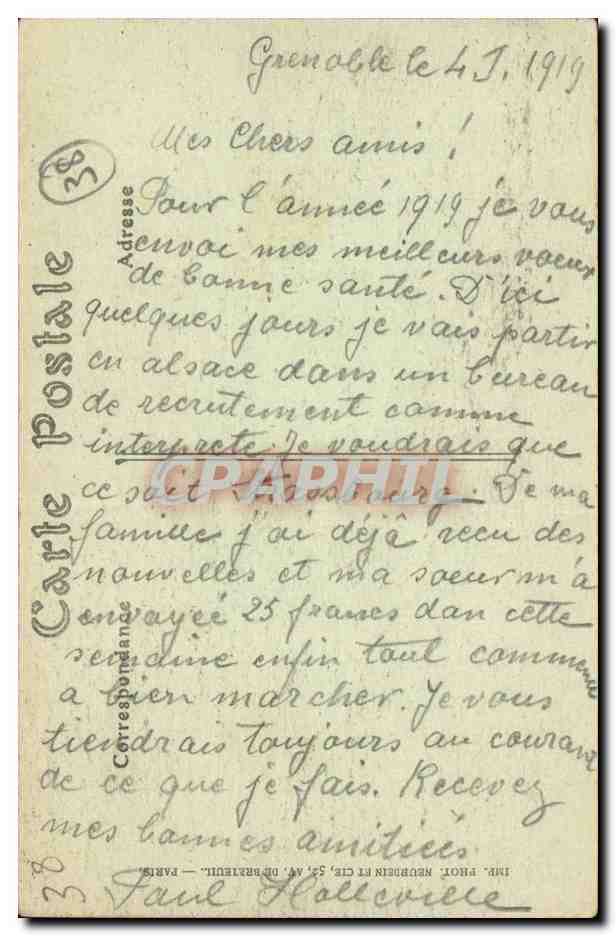 Grenoble le 4 J. 1919
Mes Chers amis !
Pour l'année 1919 je vous
envoi mes meilleurs voeux
de bonne santé. D'ici
quelques jours je vais partir
en alsace dans un bureau
de recrutement comme
interprete. Je voudrais que
ce soit Strassbourg. De ma
famille j'ai déjà recu des
nouvelles et ma soeur m'a
envoyéé 25 francs dan cette
semaine enfin tout commence
a bien marcher. Je vous
tiendrais toujours au courant
de ce que je fais. Recevez
mes bonnes amitiées
Paul
38
38
Carte Postale
Adresse
Correspondance
IMP. PHOT. NEURDEIN ET CIE, 52, AV. DE BRETEUIL. — PARIS.
CPAPHIL